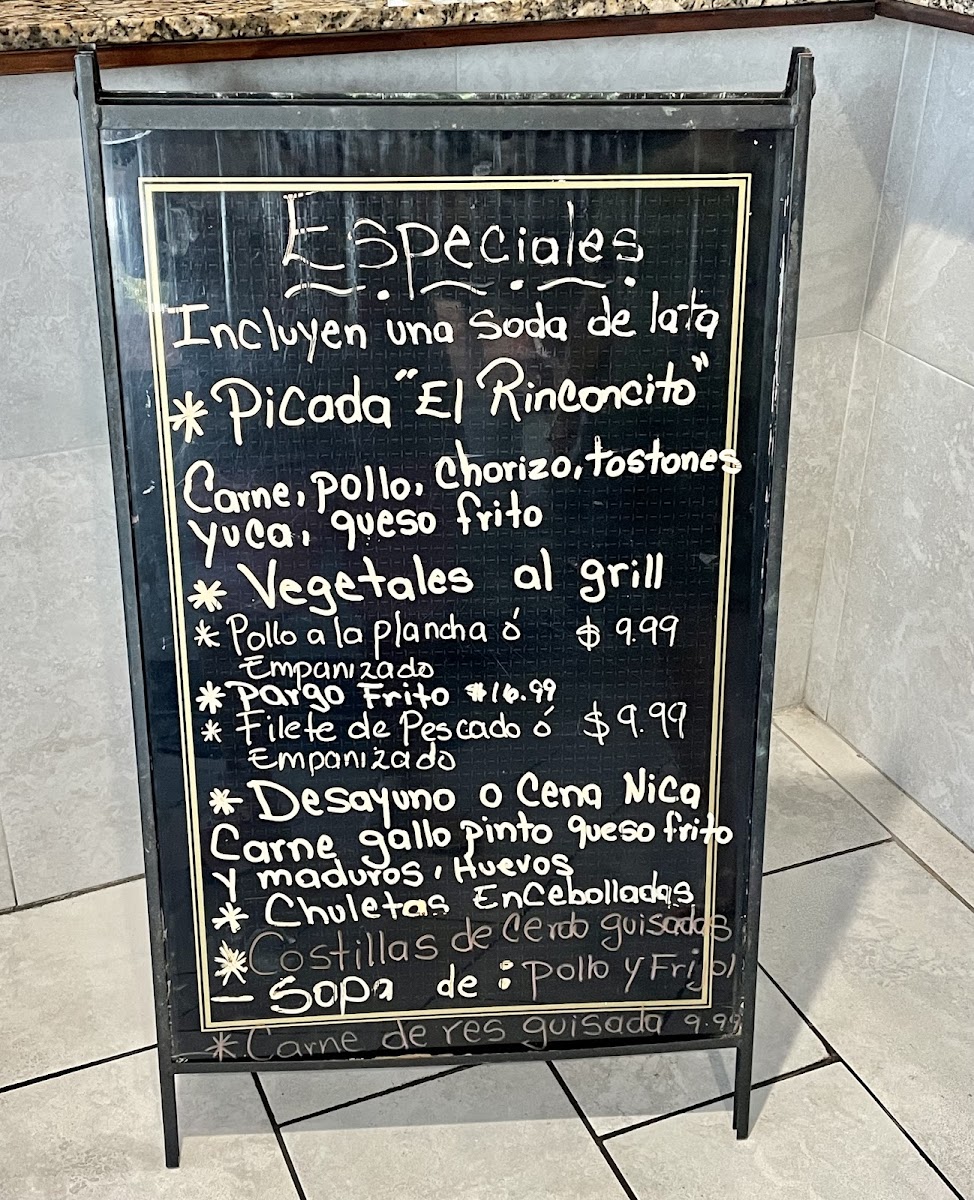 Especiales
Incluyen una soda de lata
* Picada "El Rinconcito"
Carne, pollo, chorizo, tostones
yuca, queso frito
* Vegetales al grill
* Pollo a la plancha ó $ 9.99
Empanizado
* Pargo Frito $16.99
* Filete de Pescado ó $ 9.99
Empanizado
* Desayuno o Cena Nica
Carne gallo pinto queso frito
y maduros, Huevos
* Chuletas Encebolladas
* Costillas de cerdo guisadas
- Sopa de : pollo y Frijol
* Carne de res guisada 9.99